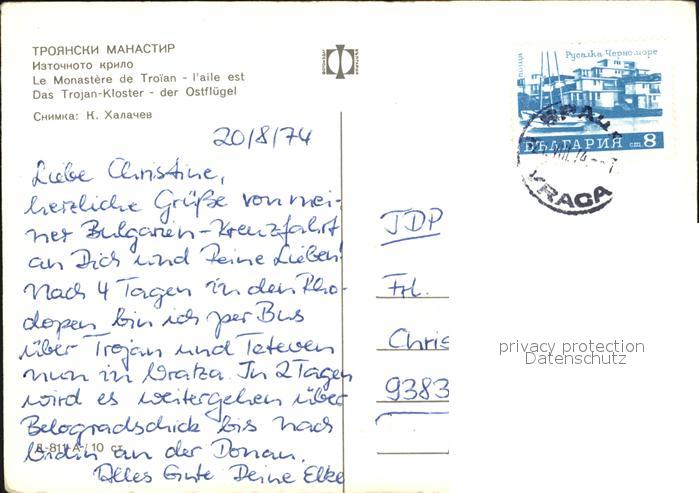 ТРОЯНСКИ МАНАСТИР
Източното крило
Le Monastère de Troïan - l'aile est
Das Trojan-Kloster - der Ostflügel
Снимка: К. Халачев
20/8/74
Liebe Christine,
herzliche Grüße von mei-
ner Bulgarien-Kreuzfahrt
an Dich und Deine Lieben!
Nach 4 Tagen in den Rho-
dopen bin ich per Bus
über Trojan und Teteven
nun in Vratza. In 2 Tagen
wird es weitergehen über
Belogradschick bis nach
Vidin an der Donau.
Alles Gute Deine Elke
А-10 ст.
поща
Русалка Черноморе
БЪЛГАРИЯ ст. 8
VRACA
JDP
Frl.
Chris
9383
privacy protection
Datenschutz